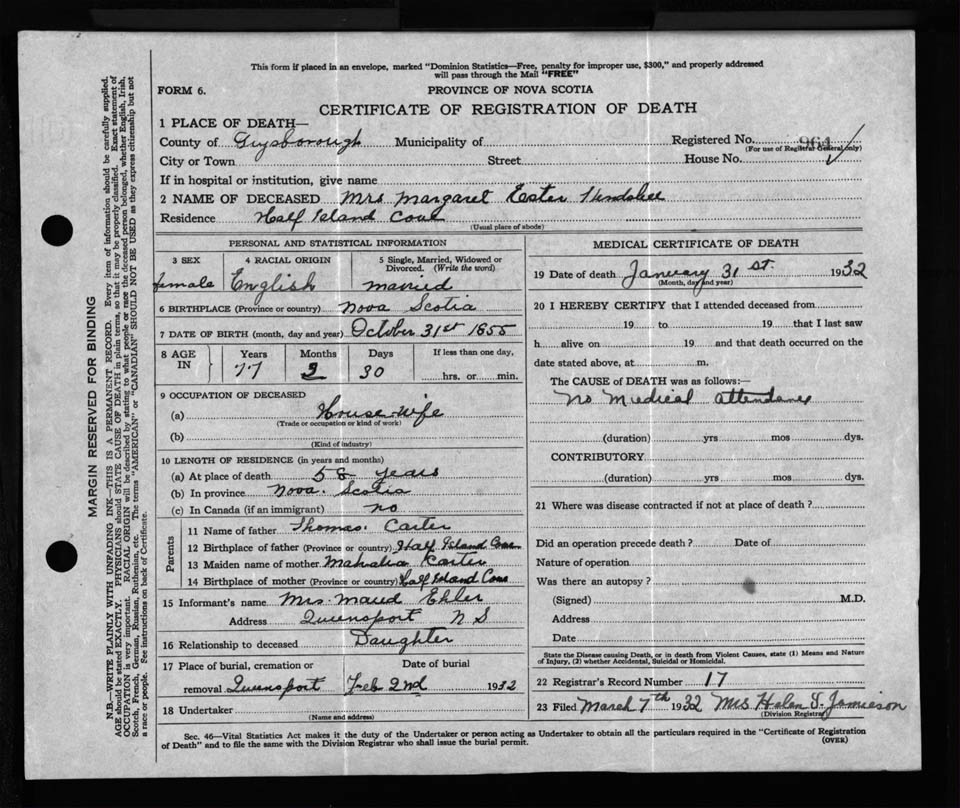 This form if placed in an envelope, marked "Dominion Statistics—Free, penalty for improper use, $300," and properly addressed
will pass through the Mail "FREE"
FORM 6.
PROVINCE OF NOVA SCOTIA
CERTIFICATE OF REGISTRATION OF DEATH
1 PLACE OF DEATH—
County of Guysborough Municipality of Registered No. 964
(For use of Registrar General only)
City or Town Street House No.
If in hospital or institution, give name
2 NAME OF DECEASED Mrs Margaret Ester Hendsbee
Residence Half Island Cove
(Usual place of abode)
PERSONAL AND STATISTICAL INFORMATION
3 SEX 4 RACIAL ORIGIN 5 Single, Married, Widowed or
Divorced. (Write the word)
female English married
6 BIRTHPLACE (Province or country) Nova Scotia
7 DATE OF BIRTH (month, day and year) October 31st 1855
8 AGE IN Years Months Days If less than one day,
77 3 30 hrs. or min.
9 OCCUPATION OF DECEASED
(a) House-wife
(Trade or occupation or kind of work)
(b)
(Kind of industry)
10 LENGTH OF RESIDENCE (in years and months)
(a) At place of death 58 years
(b) In province Nova. Scotia
(c) In Canada (if an immigrant) no
Parents
11 Name of father Thomas. Carter
12 Birthplace of father (Province or country) Half Island Cove
13 Maiden name of mother Mahalia Carter
14 Birthplace of mother (Province or country) Half Island Cove
15 Informant's name Mrs. Maud Ehler
Address Queensport N S
16 Relationship to deceased Daughter
17 Place of burial, cremation or Date of burial
removal Queensport Feb 2nd 1932
18 Undertaker
(Name and address)
MEDICAL CERTIFICATE OF DEATH
19 Date of death January 31 st. 1932
(Month, day and year)
20 I HEREBY CERTIFY that I attended deceased from
19 to 19 that I last saw
h alive on 19 and that death occurred on the
date stated above, at m.
The CAUSE OF DEATH was as follows:—
No Medical attendance
(duration) yrs mos dys.
CONTRIBUTORY
(duration) yrs mos dys.
21 Where was disease contracted if not at place of death?
Did an operation precede death? Date of
Nature of operation
Was there an autopsy?
(Signed) M.D.
Address
Date
State the Disease causing Death, or in death from Violent Causes, state (1) Means and Nature
of Injury, (2) whether Accidental, Suicidal or Homicidal.
22 Registrar's Record Number 17
23 Filed March 7th 1932 Mrs Helen S. Jamieson
(Division Registrar)
Sec. 46—Vital Statistics Act makes it the duty of the Undertaker or person acting as Undertaker to obtain all the particulars required in the "Certificate of Registration
of Death" and to file the same with the Division Registrar who shall issue the burial permit.
(OVER)
MARGIN RESERVED FOR BINDING
N.B.—WRITE PLAINLY WITH UNFADING INK—THIS IS A PERMANENT RECORD. Every item of information should be carefully supplied.
AGE should be stated EXACTLY. PHYSICIANS should STATE CAUSE OF DEATH in plain terms, so that it may be properly classified. Exact statement of
OCCUPATION is very important. RACIAL ORIGIN will be described by stating to what people or race the deceased person belonged, whether English, Irish,
Scotch, French, German, Russian, Ruthenian, etc. The terms "AMERICAN" or "CANADIAN" SHOULD NOT BE USED as they express citizenship but not
a race or people. See instructions on back of Certificate.